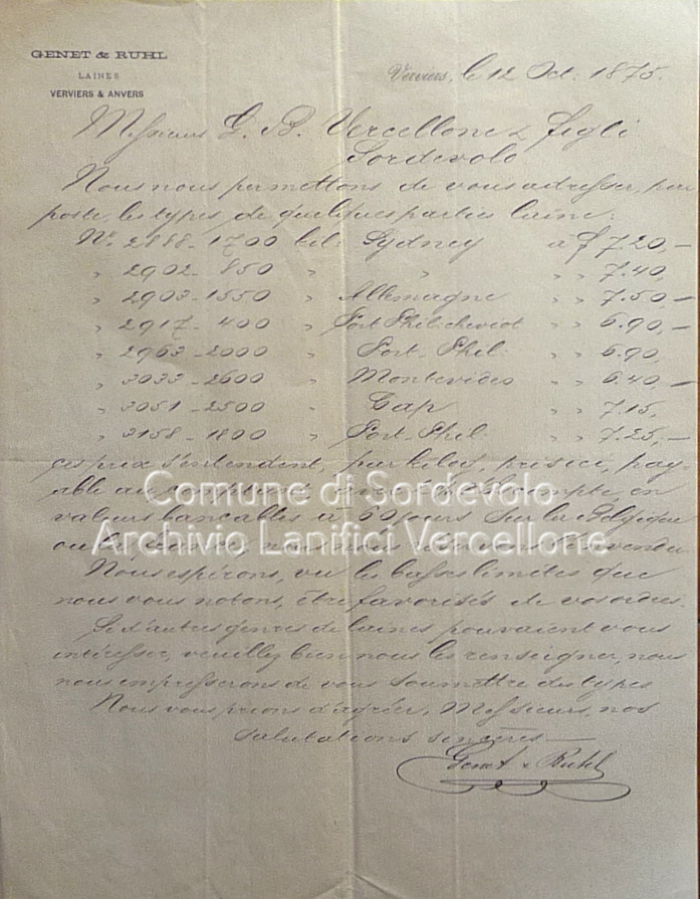 GENET & RUHL
LAINES
VERVIERS & ANVERS
Verviers, le 12 Oct. 1875.
Messieurs G. B. Vercellone & figli
Sordevolo
Nous nous permettons de vous adresser, par
poste, les types de quelques parties laine:
No. 2888 - 1700 kil. Sydney à f 7.20,-
" 2902 - 850 " " " 7.40,
" 2903 - 1550 " Allemagne " " 7.50,-
" 2917 - 400 " Port Phil. cheviot " " 6.90,-
" 2963 - 2000 " Port-Phil. " " 6.90,
" 3033 - 2600 " Montevideo " " 6.40,-
" 3051 - 2500 " Cap " " 7.15,
" 3158 - 1800 " Port-Phil. " " 7.25,-
Ces prix s'entendent, par kilo, pris ici, pay-
able au comptant escompte, en
valeurs bancables à 60 jours sur la Belgique
ou
Nous espérons, vu les basses limites que
nous vous notons, être favorisés de vos ordres.
Si d'autres genres de laines pouvaient vous
intéresser, veuillez bien nous les renseigner, nous
nous empresserons de vous soumettre des types
Nous vous prions d'agréer, Messieurs, nos
salutations sincères -
Genet & Ruhl
Comune di Sordevolo
Archivio Lanifici Vercellone